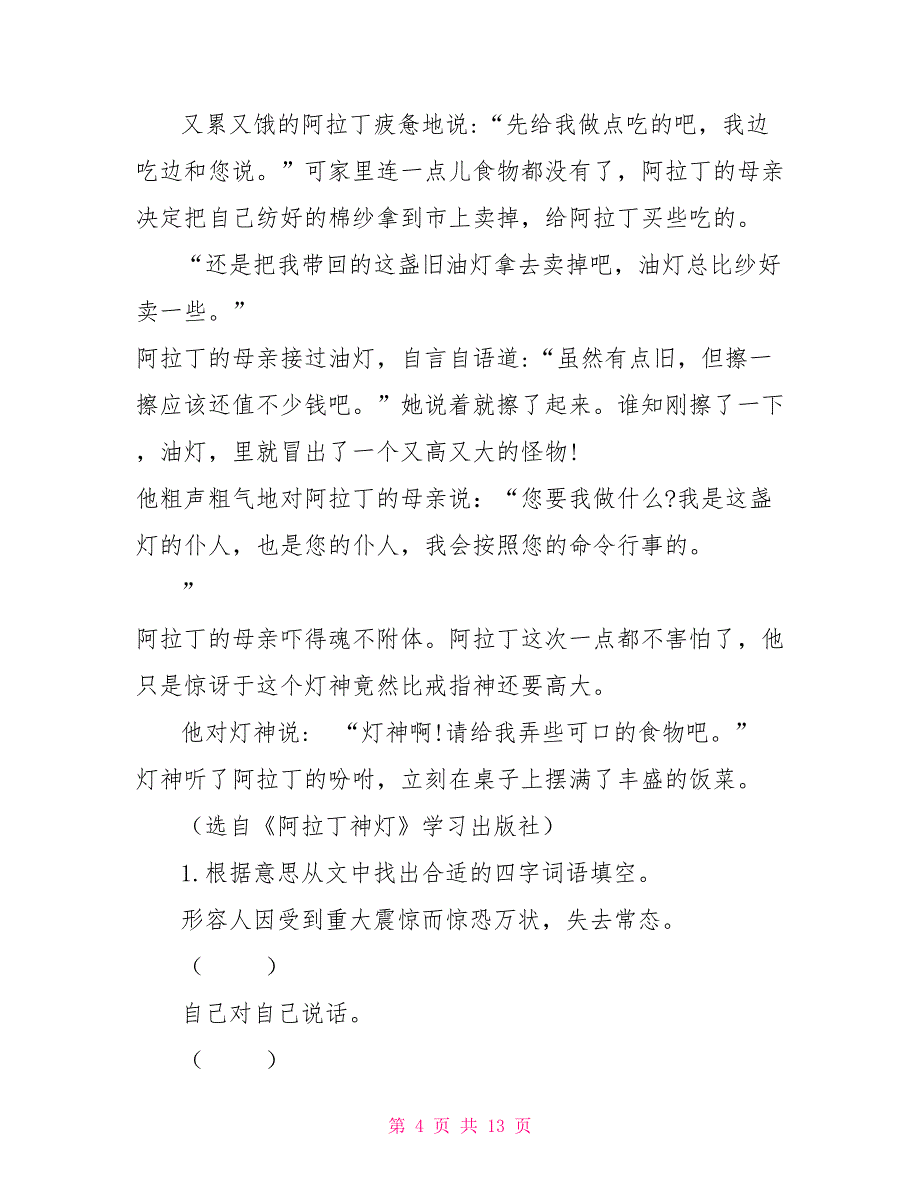 又累又饿的阿拉丁疲惫地说:“先给我做点吃的吧，我边
吃边和您说。”可家里连一点儿食物都没有了，阿拉丁的母亲
决定把自己纺好的棉纱拿到市上卖掉，给阿拉丁买些吃的。
“还是把我带回的这盏旧油灯拿去卖掉吧，油灯总比纱好
卖一些。”
阿拉丁的母亲接过油灯，自言自语道:“虽然有点旧，但擦一
擦应该还值不少钱吧。”她说着就擦了起来。谁知刚擦了一下
，油灯，里就冒出了一个又高又大的怪物!
他粗声粗气地对阿拉丁的母亲说：“您要我做什么?我是这盏
灯的仆人，也是您的仆人，我会按照您的命令行事的。
”
阿拉丁的母亲吓得魂不附体。阿拉丁这次一点都不害怕了，他
只是惊讶于这个灯神竟然比戒指神还要高大。
他对灯神说: “灯神啊!请给我弄些可口的食物吧。”
灯神听了阿拉丁的吩咐，立刻在桌子上摆满了丰盛的饭菜。
（选自《阿拉丁神灯》学习出版社）
1.根据意思从文中找出合适的四字词语填空。
形容人因受到重大震惊而惊恐万状，失去常态。
（ ）
自己对自己说话。
（ ）
第 4 页 共 13 页